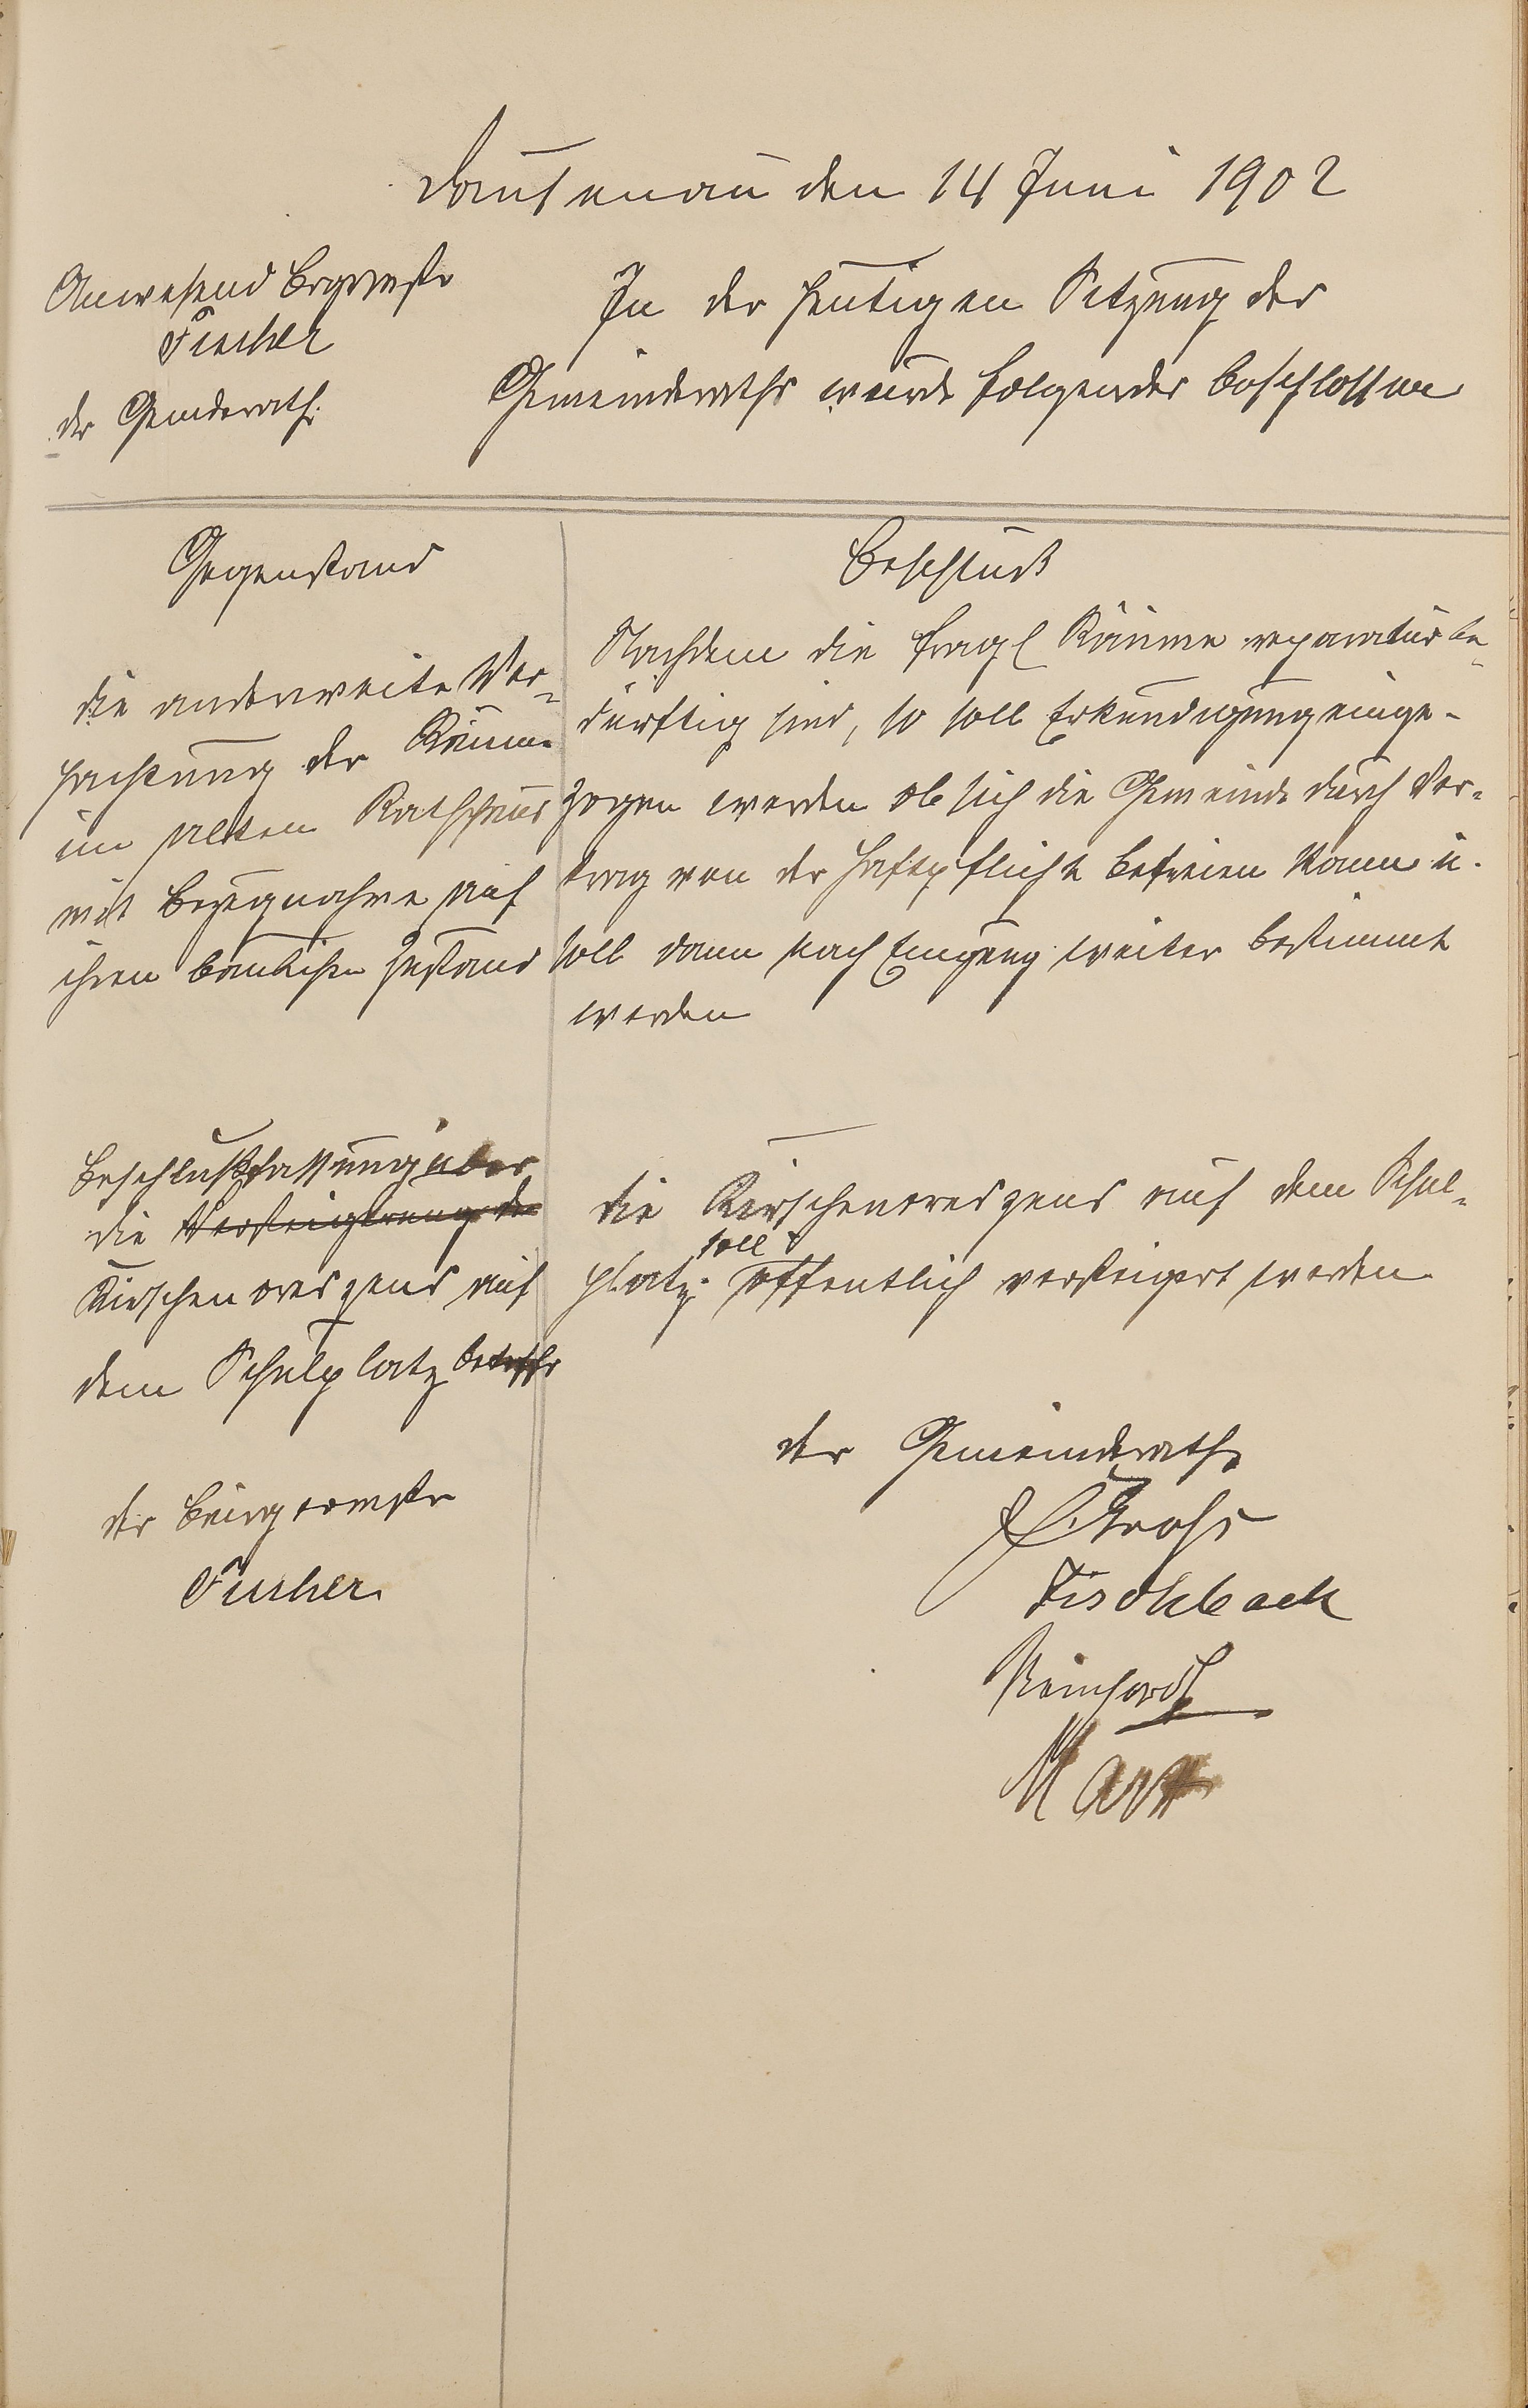 Dausenau den 14 Juni 1902
Anwesend Brgrmstr
Fischer
der Gemderath.
In der heutigen Sitzung des
Gemeinderaths wurde folgendes beschlossen
Gegenstand
die anderweite Ver-
pachtung der Räume
im alten Rathhaus
mit Bezugnahme auf
ihren baulichen Zustand
Beschluß
Nachdem die fragl Räume reparaturbe-
dürftig sind, so soll Erkundigung einge-
zogen werden ob sich die Gemeinde durch Ver-
trag von der Haftpflicht befreien kann u.
soll dann nach Eingang weiter bestimmt
werden
Beschlußfassung über
die Versteigerung der
Kirschencreszens auf
dem Schulplatz betreffs
die Kirschencreszens auf dem Schul-
soll
platz öffentlich versteigert werden
der Bürgermstr
Fischer
der Gemeinderath
Fischbach
Reinhardt